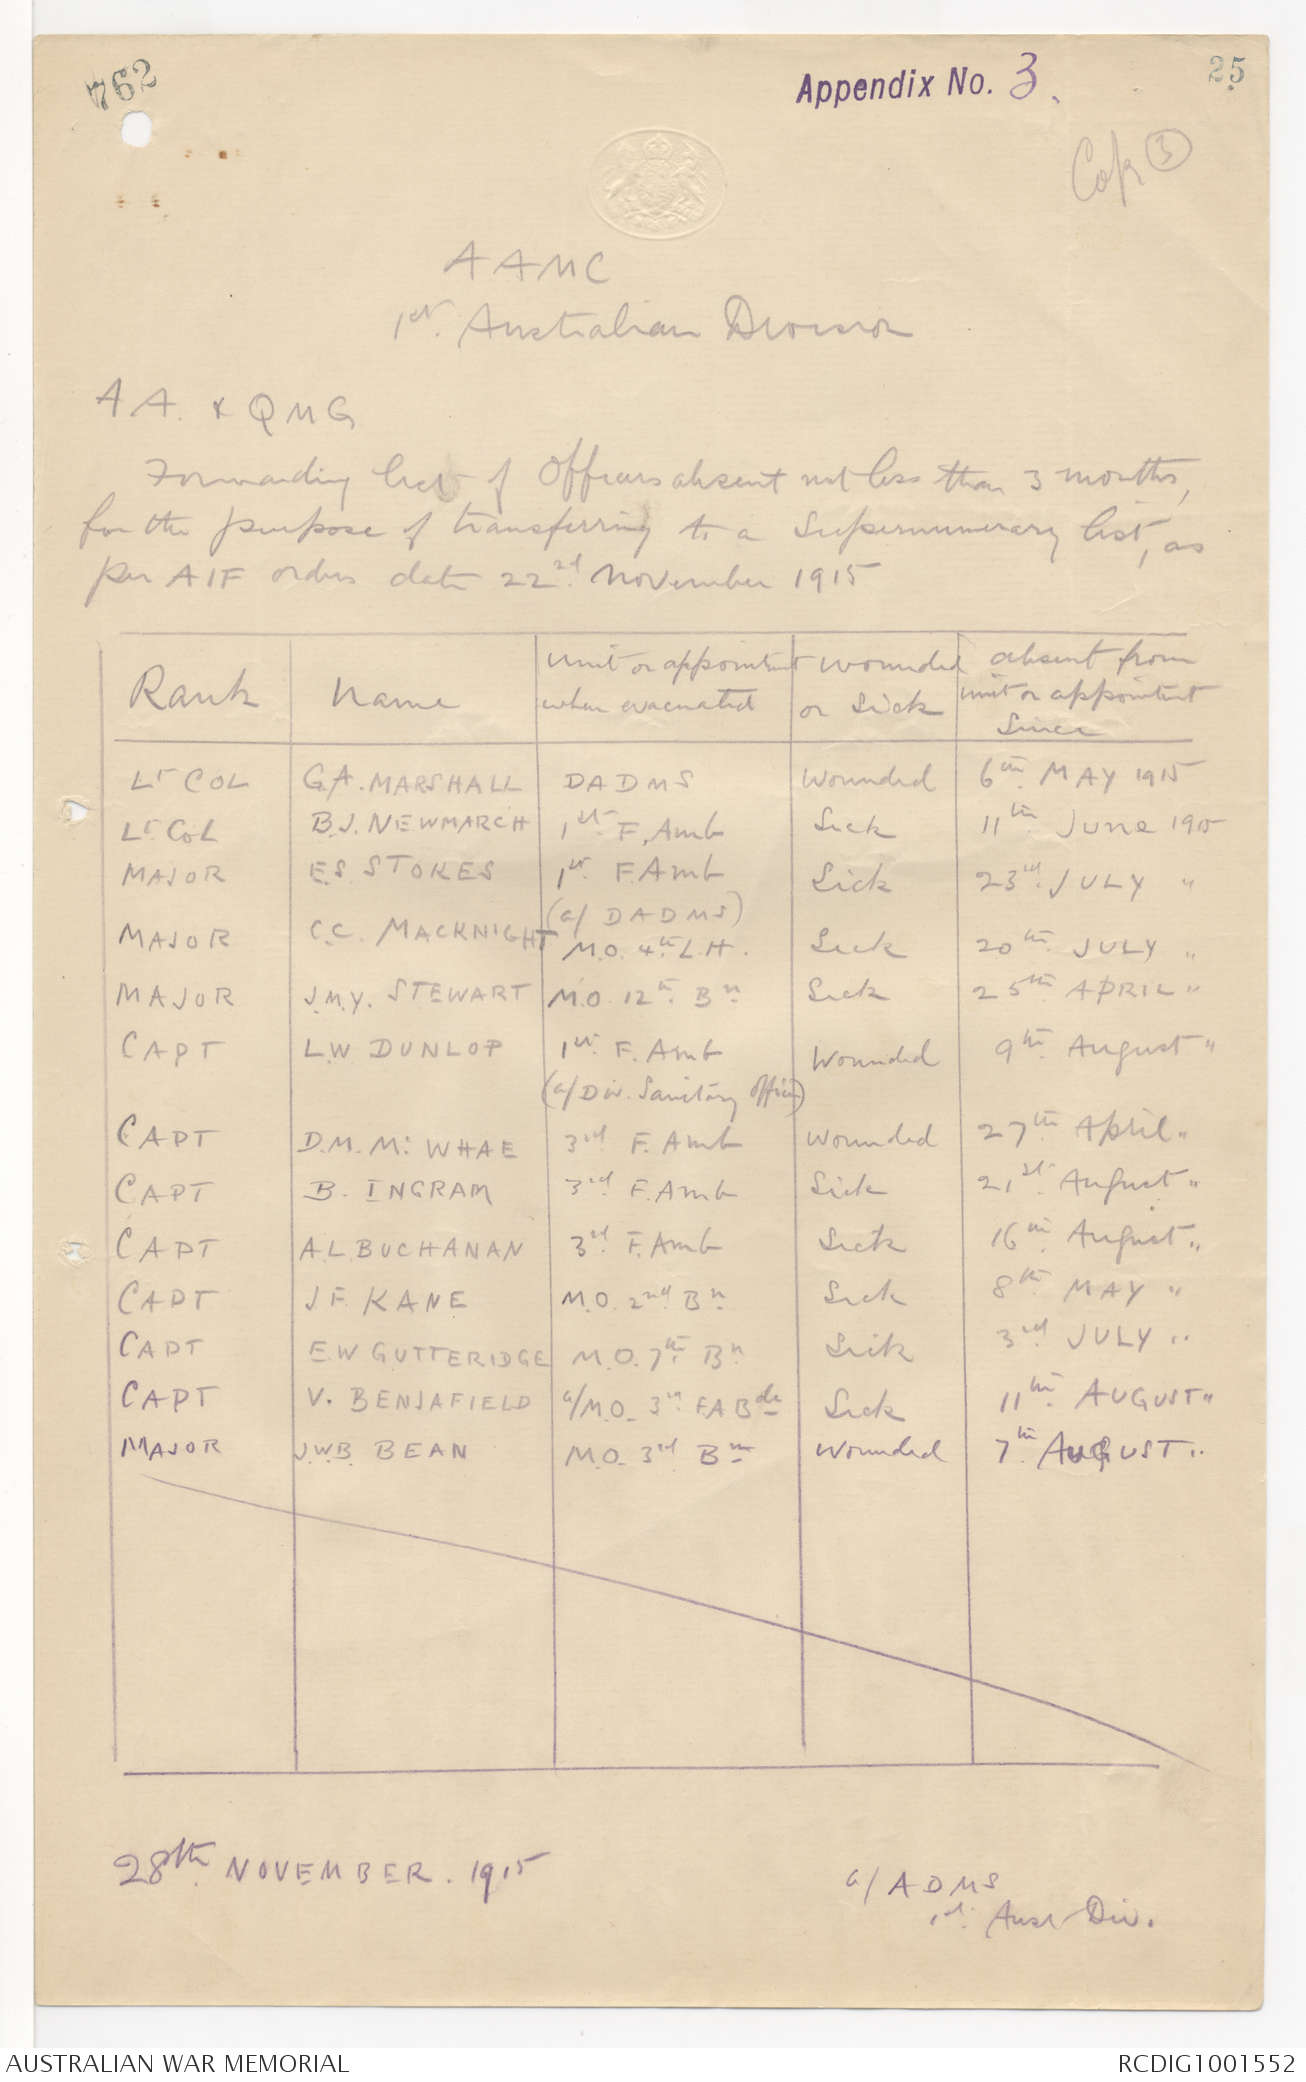 762
Appendix No. 3.
25
Cop 3
AAMC
1st. Australian Division
AA. & QMG
Forwarding list of Officers absent not less than 3 months,
for the purpose of transferring to a Supernumerary list, as
per AIF orders date 22nd November 1915
Rank | Name | Unit or appointment when evacuated | Wounded or Sick | absent from unit or appointment Since
Lt COL | G.A. MARSHALL | DADMS | Wounded | 6th MAY 1915
Lt COL | B.J. NEWMARCH | 1st F. Amb | Sick | 11th June 1915
MAJOR | E.S. STOKES | 1st. F. Amb | Sick | 23rd JULY "
(a/ DADMS)
MAJOR | C.C. MACKNIGHT | M.O. 4th L.H. | Sick | 20th JULY "
MAJOR | J.M.Y. STEWART | M.O. 12th Bn | Sick | 25th APRIL "
CAPT | L.W DUNLOP | 1st. F. Amb | Wounded | 9th August "
(a/ Div. Sanitary Officer)
CAPT | D.M. Mc WHAE | 3rd F. Amb | Wounded | 27th April "
CAPT | B. INGRAM | 3rd F. Amb | Sick | 21st August "
CAPT | A.L BUCHANAN | 3rd F. Amb | Sick | 16th August "
CAPT | J F. KANE | M.O. 2nd Bn | Sick | 8th MAY "
CAPT | E W GUTTERIDGE | M.O. 7th Bn | Sick | 3rd JULY "
CAPT | V. BENJAFIELD | a/M.O. 3rd F.A Bde | Sick | 11th AUGUST "
MAJOR | J.W.B. BEAN | M.O. 3rd Bn | Wounded | 7th AUGUST "
28th NOVEMBER. 1915
a/ ADMS
1st. Aust Div.
AUSTRALIAN WAR MEMORIAL
RCDIG1001552